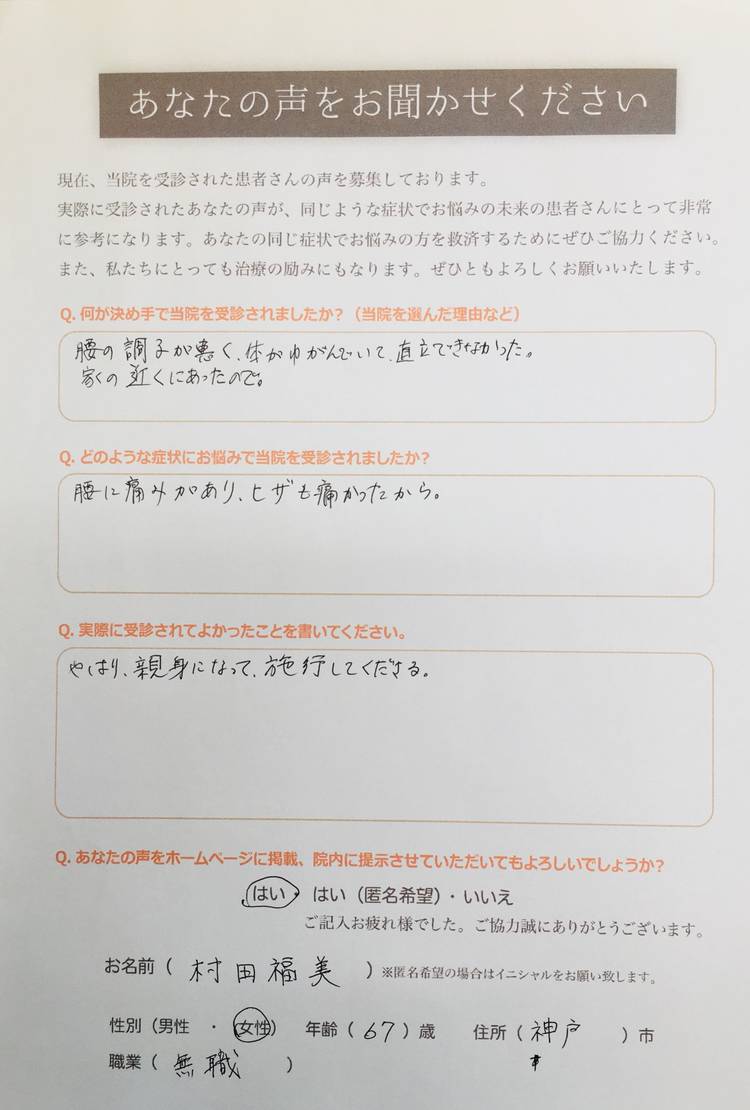 あなたの声をお聞かせください
現在、当院を受診された患者さんの声を募集しております。
実際に受診されたあなたの声が、同じような症状でお悩みの未来の患者さんにとって非常
に参考になります。あなたの同じ症状でお悩みの方を救済するためにぜひご協力ください。
また、私たちにとっても治療の励みにもなります。ぜひともよろしくお願いいたします。
Q. 何が決め手で当院を受診されましたか?（当院を選んだ理由など）
腰の調子が悪く、体がゆがんでいて、直立できなかった。
家の近くにあったので。
Q. どのような症状にお悩みで当院を受診されましたか?
腰に痛みがあり、ヒザも痛かったから。
Q. 実際に受診されてよかったことを書いてください。
やはり、親身になって、施行してくださる。
Q. あなたの声をホームページに掲載、院内に提示させていただいてもよろしいでしょうか?
はい・はい（匿名希望）・いいえ
ご記入お疲れ様でした。ご協力誠にありがとうございます。
お名前（ 村田福美 ）※匿名希望の場合はイニシャルをお願い致します。
性別（男性 ・ 女性） 年齢（ 67 ）歳 住所（ 神戸 ）市
職業（ 無職 ）